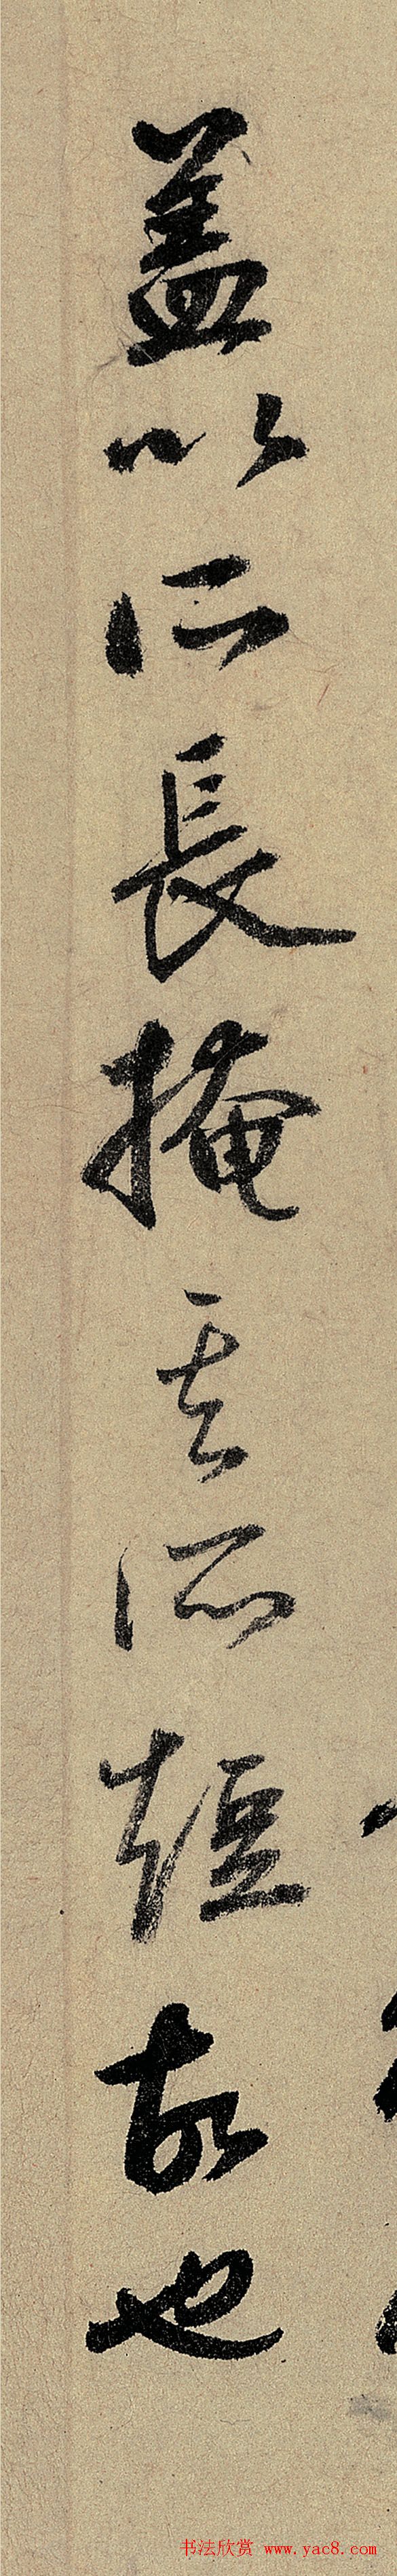 盖以所長掩其所短故也
书法欣赏 www.yac8.com